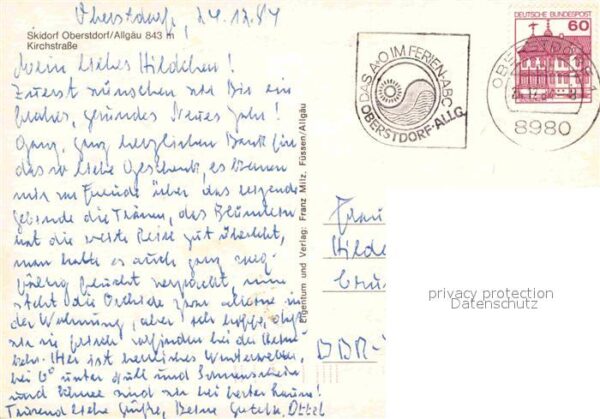 Oberstdorf, 24.12.84
Skidorf Oberstdorf/Allgäu 843 m
Kirchstraße
Mein liebes Hildchen!
Zuerst wünschen wir Dir ein
frohes, gesundes Neues Jahr!
Ganz, ganz herzlichen Dank für
das so liebe Geschenk, es kamen
mir vor Freude über das
die Tränen, das Blümlein
hat die weite Reise gut überlebt,
man hatte es auch ganz
feucht verpackt, nun
steht die Orchidee zwar alleine in
der Wohnung, aber ich hoffe, daß
wir sie frisch vorfinden bei der
Hier ist herrliches Winterwetter,
bei 6° unter Null und Sonnenschein
und Bühne sind wir bei bester Laune!
Tausend liebe Grüße, Deine Ottel
Eigentum und Verlag: Franz Milz, Füssen/Allgäu
DAS A·O IM FERIEN-ABC
OBERSTDORF·ALLG.
DEUTSCHE BUNDESPOST
60
OBERSTDORF 1
8980
Frau
Hilde
DDR-
privacy protection
Datenschutz